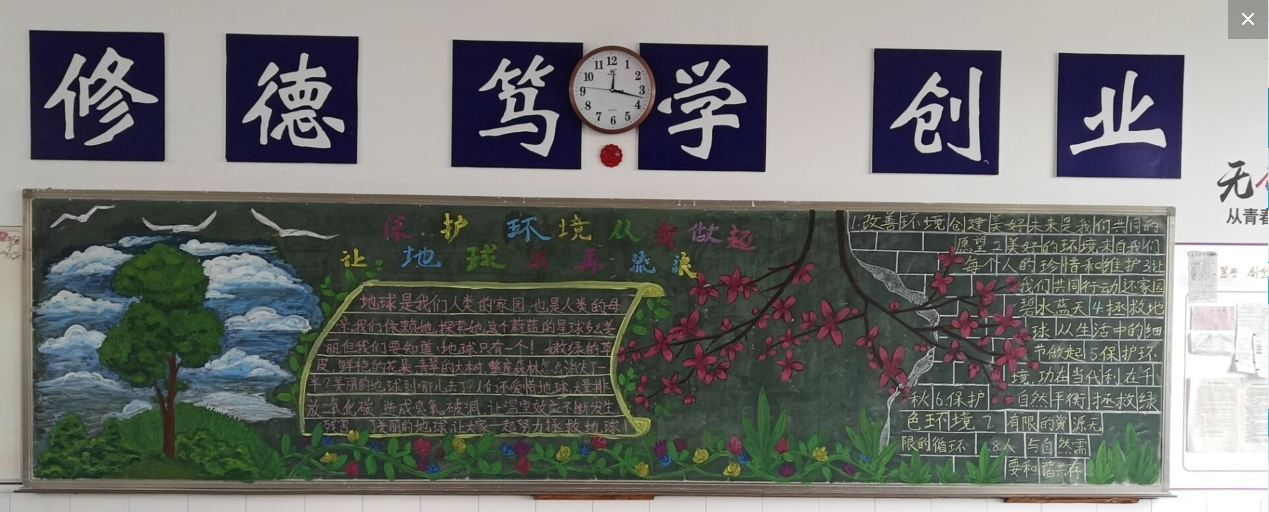 修德笃学创业
12 1 2 3 4 5 6 7 8 9 10 11
无
从青春
保护环境从我做起
让地球不再流泪
地球是我们人类的家园也是人类的母
亲我们依赖她,探索她,这个蔚蓝的星球多么美
丽但我们要知道:地球只有一个!嫩绿的草
皮,鲜艳的花朵,青翠的大树,整座森林怎么消失了一
半?美丽的地球到哪儿去了?人们不爱惜地球,大量排
放二氧化碳,造成臭氧破洞,让温室效应不断发生
美丽的地球,让大家一起努力拯救地球
1.改善环境创建美好未来是我们共同的
愿望2.美好的环境来自我们
每个人的珍惜和维护3让
我们共同行动还家园
碧水蓝天4.拯救地
球从生活中的细
节做起5保护环
境,功在当代利在千
秋6.保护自然平衡拯救绿
色环境7有限的资源无
限的循环8.人与自然需
要和谐共存